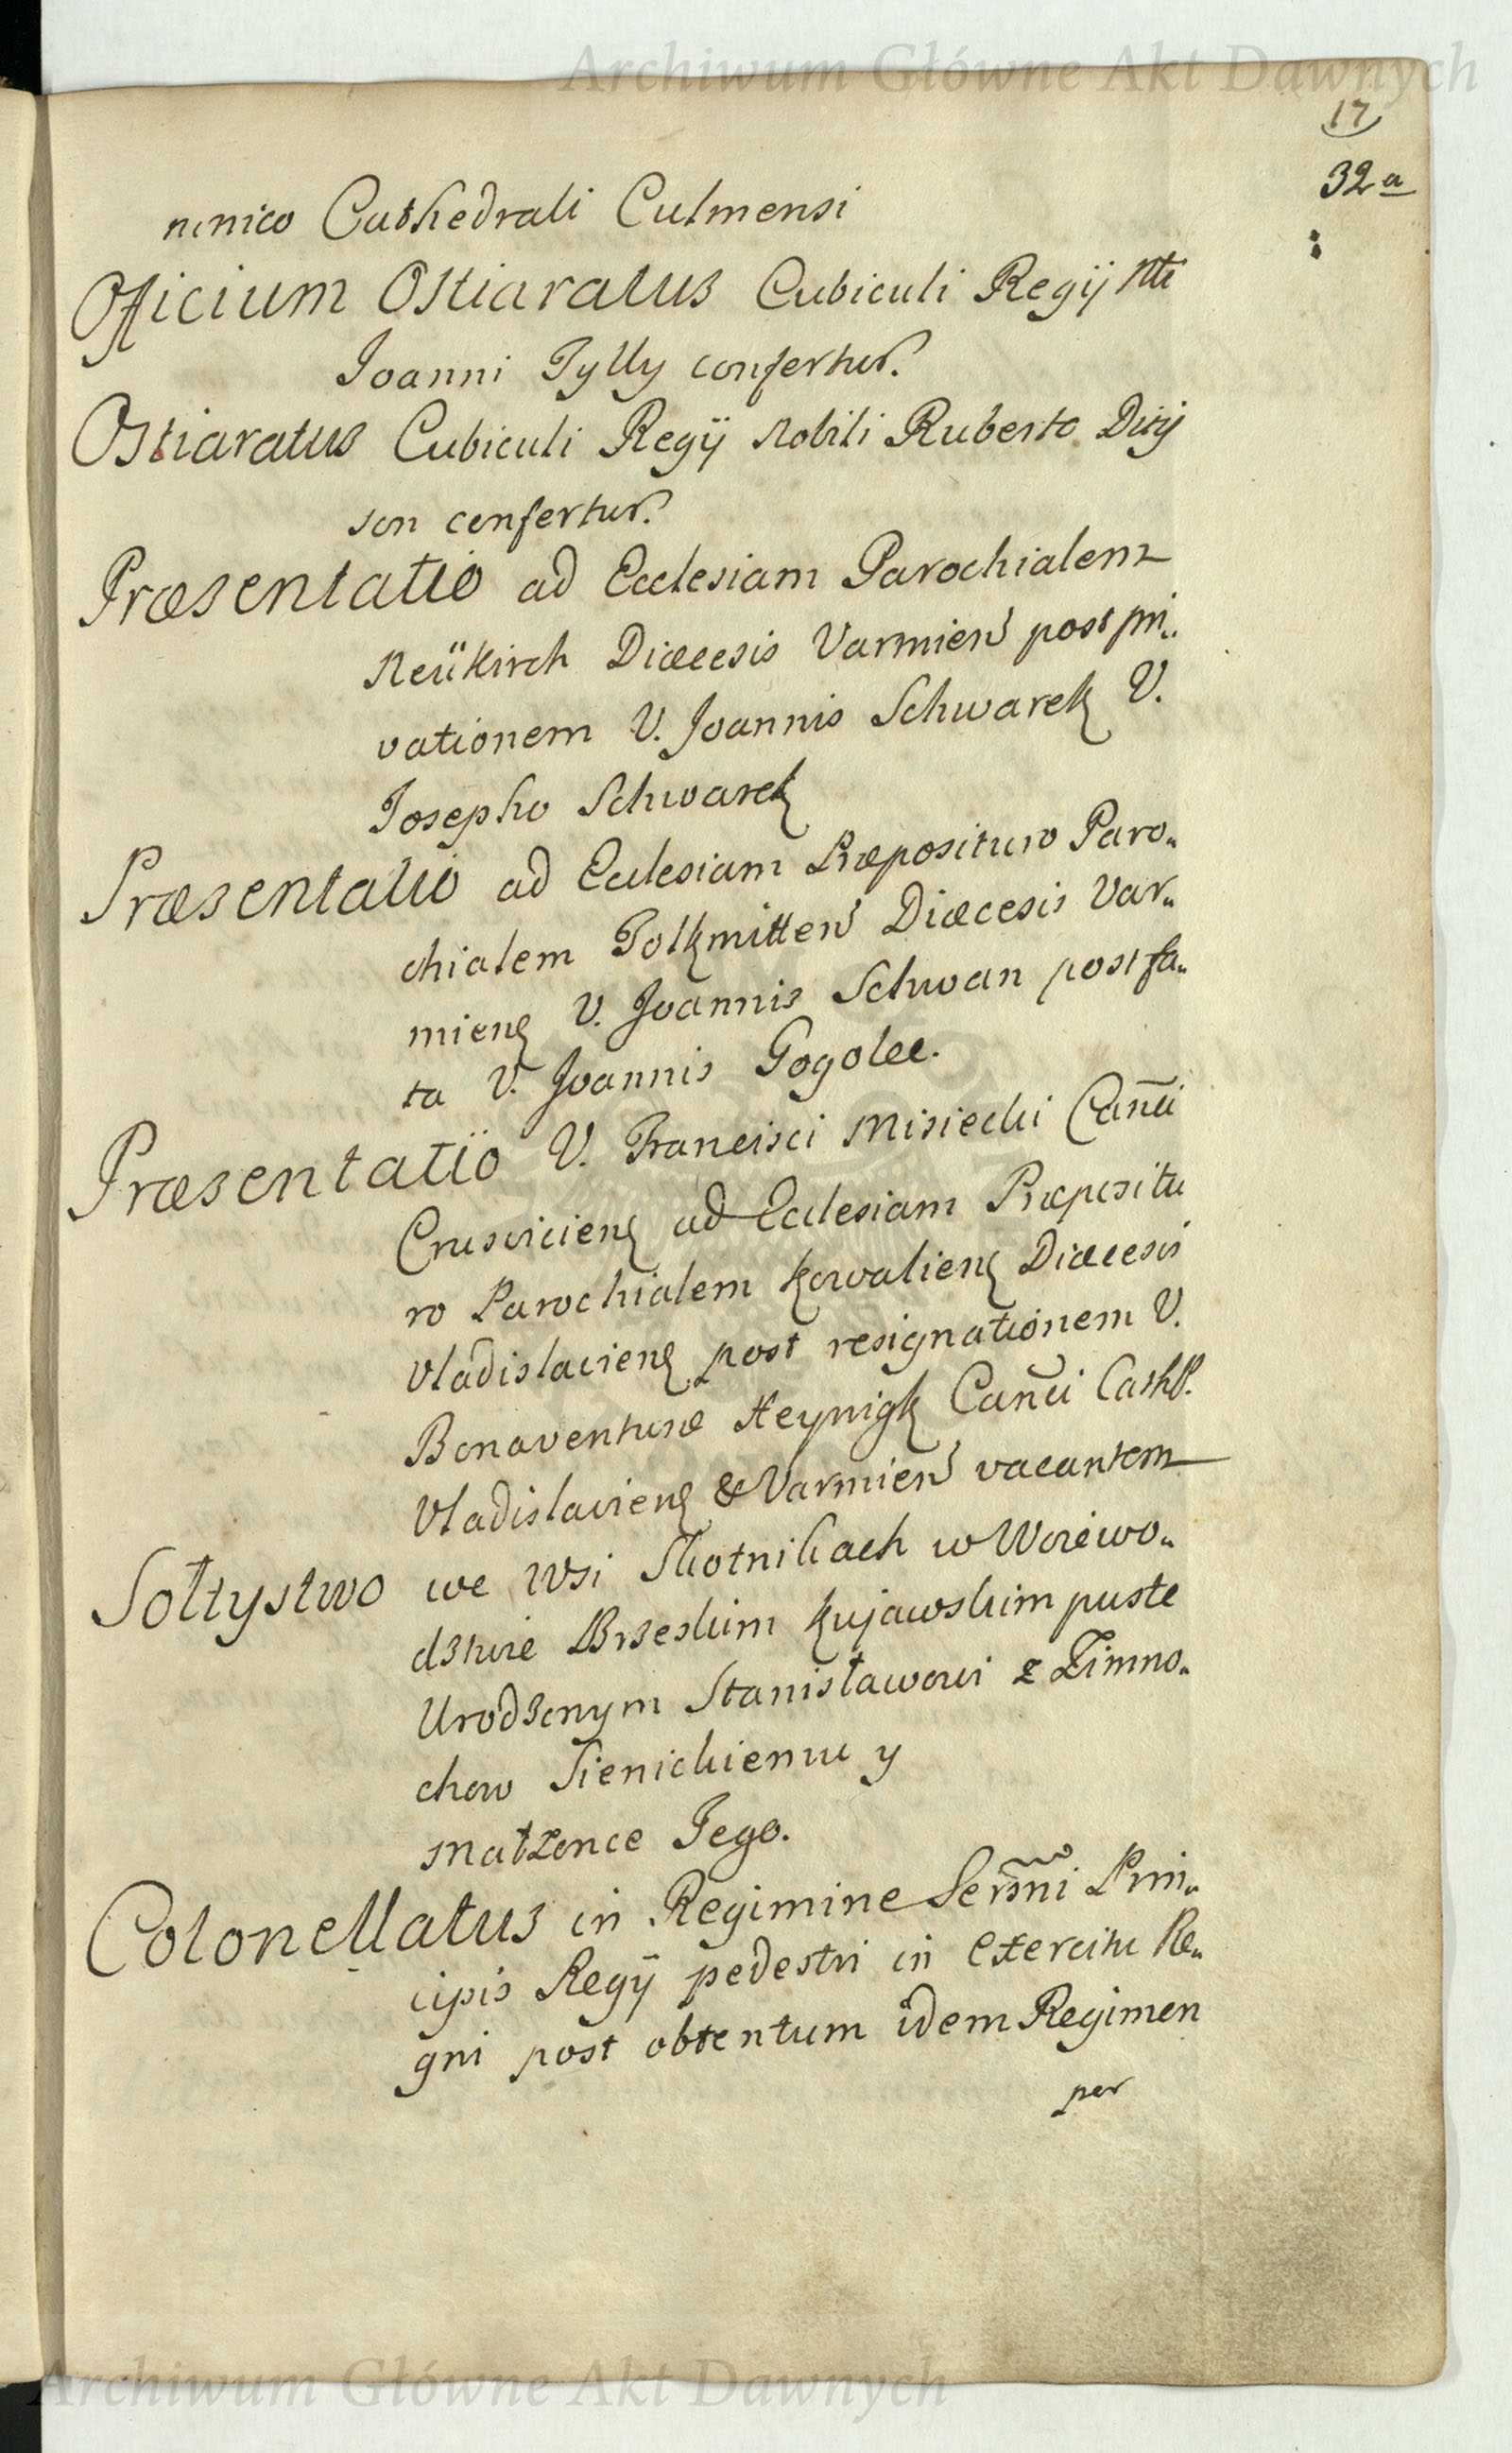 Archiwum Główne Akt Dawnych
17
32a
nonico Cathedrali Culmensi
Officium Ostiaratus Cubiculi Regij Nti
Joanni Tylly confertur.
Ostiaratus Cubiculi Regij Nobili Ruberto Diry
son confertur.
Præsentatio ad Ecclesiam Parochialem
Neükirch Diæcesis Varmien post pri„
vationem V. Joannis Schwarck V.
Josepho Schwarck
Præsentatio ad Ecclesiam Præposituro Paro„
chialem Tolkmitten Diæcesis Var„
mien V. Joannis Schwan post fa„
ta V. Joannis Gogolee.
Præsentatio V. Francisci Misiecki Canci
Crusvicien ad Ecclesiam Præpositu
ro Parochialem Kowalien Diæcesis
Vladislavien post resignationem V.
Bonaventuræ Heynigk Canci Cathl.
Vladislavien & Varmien vacantem
Sołtystwo we Wsi Skotnikach w Woiewo„
dztwie Brzeskim Kujawskim puste
Urodzonym Stanisławowi z Zimno„
chow Sienickiemu y
Małzonce Jego.
Colonellatus in Regimine Sermni Prin„
cipis Regij pedestri in Exercitu Re„
gni post obtentum idem Regimen
per
Archiwum Główne Akt Dawnych